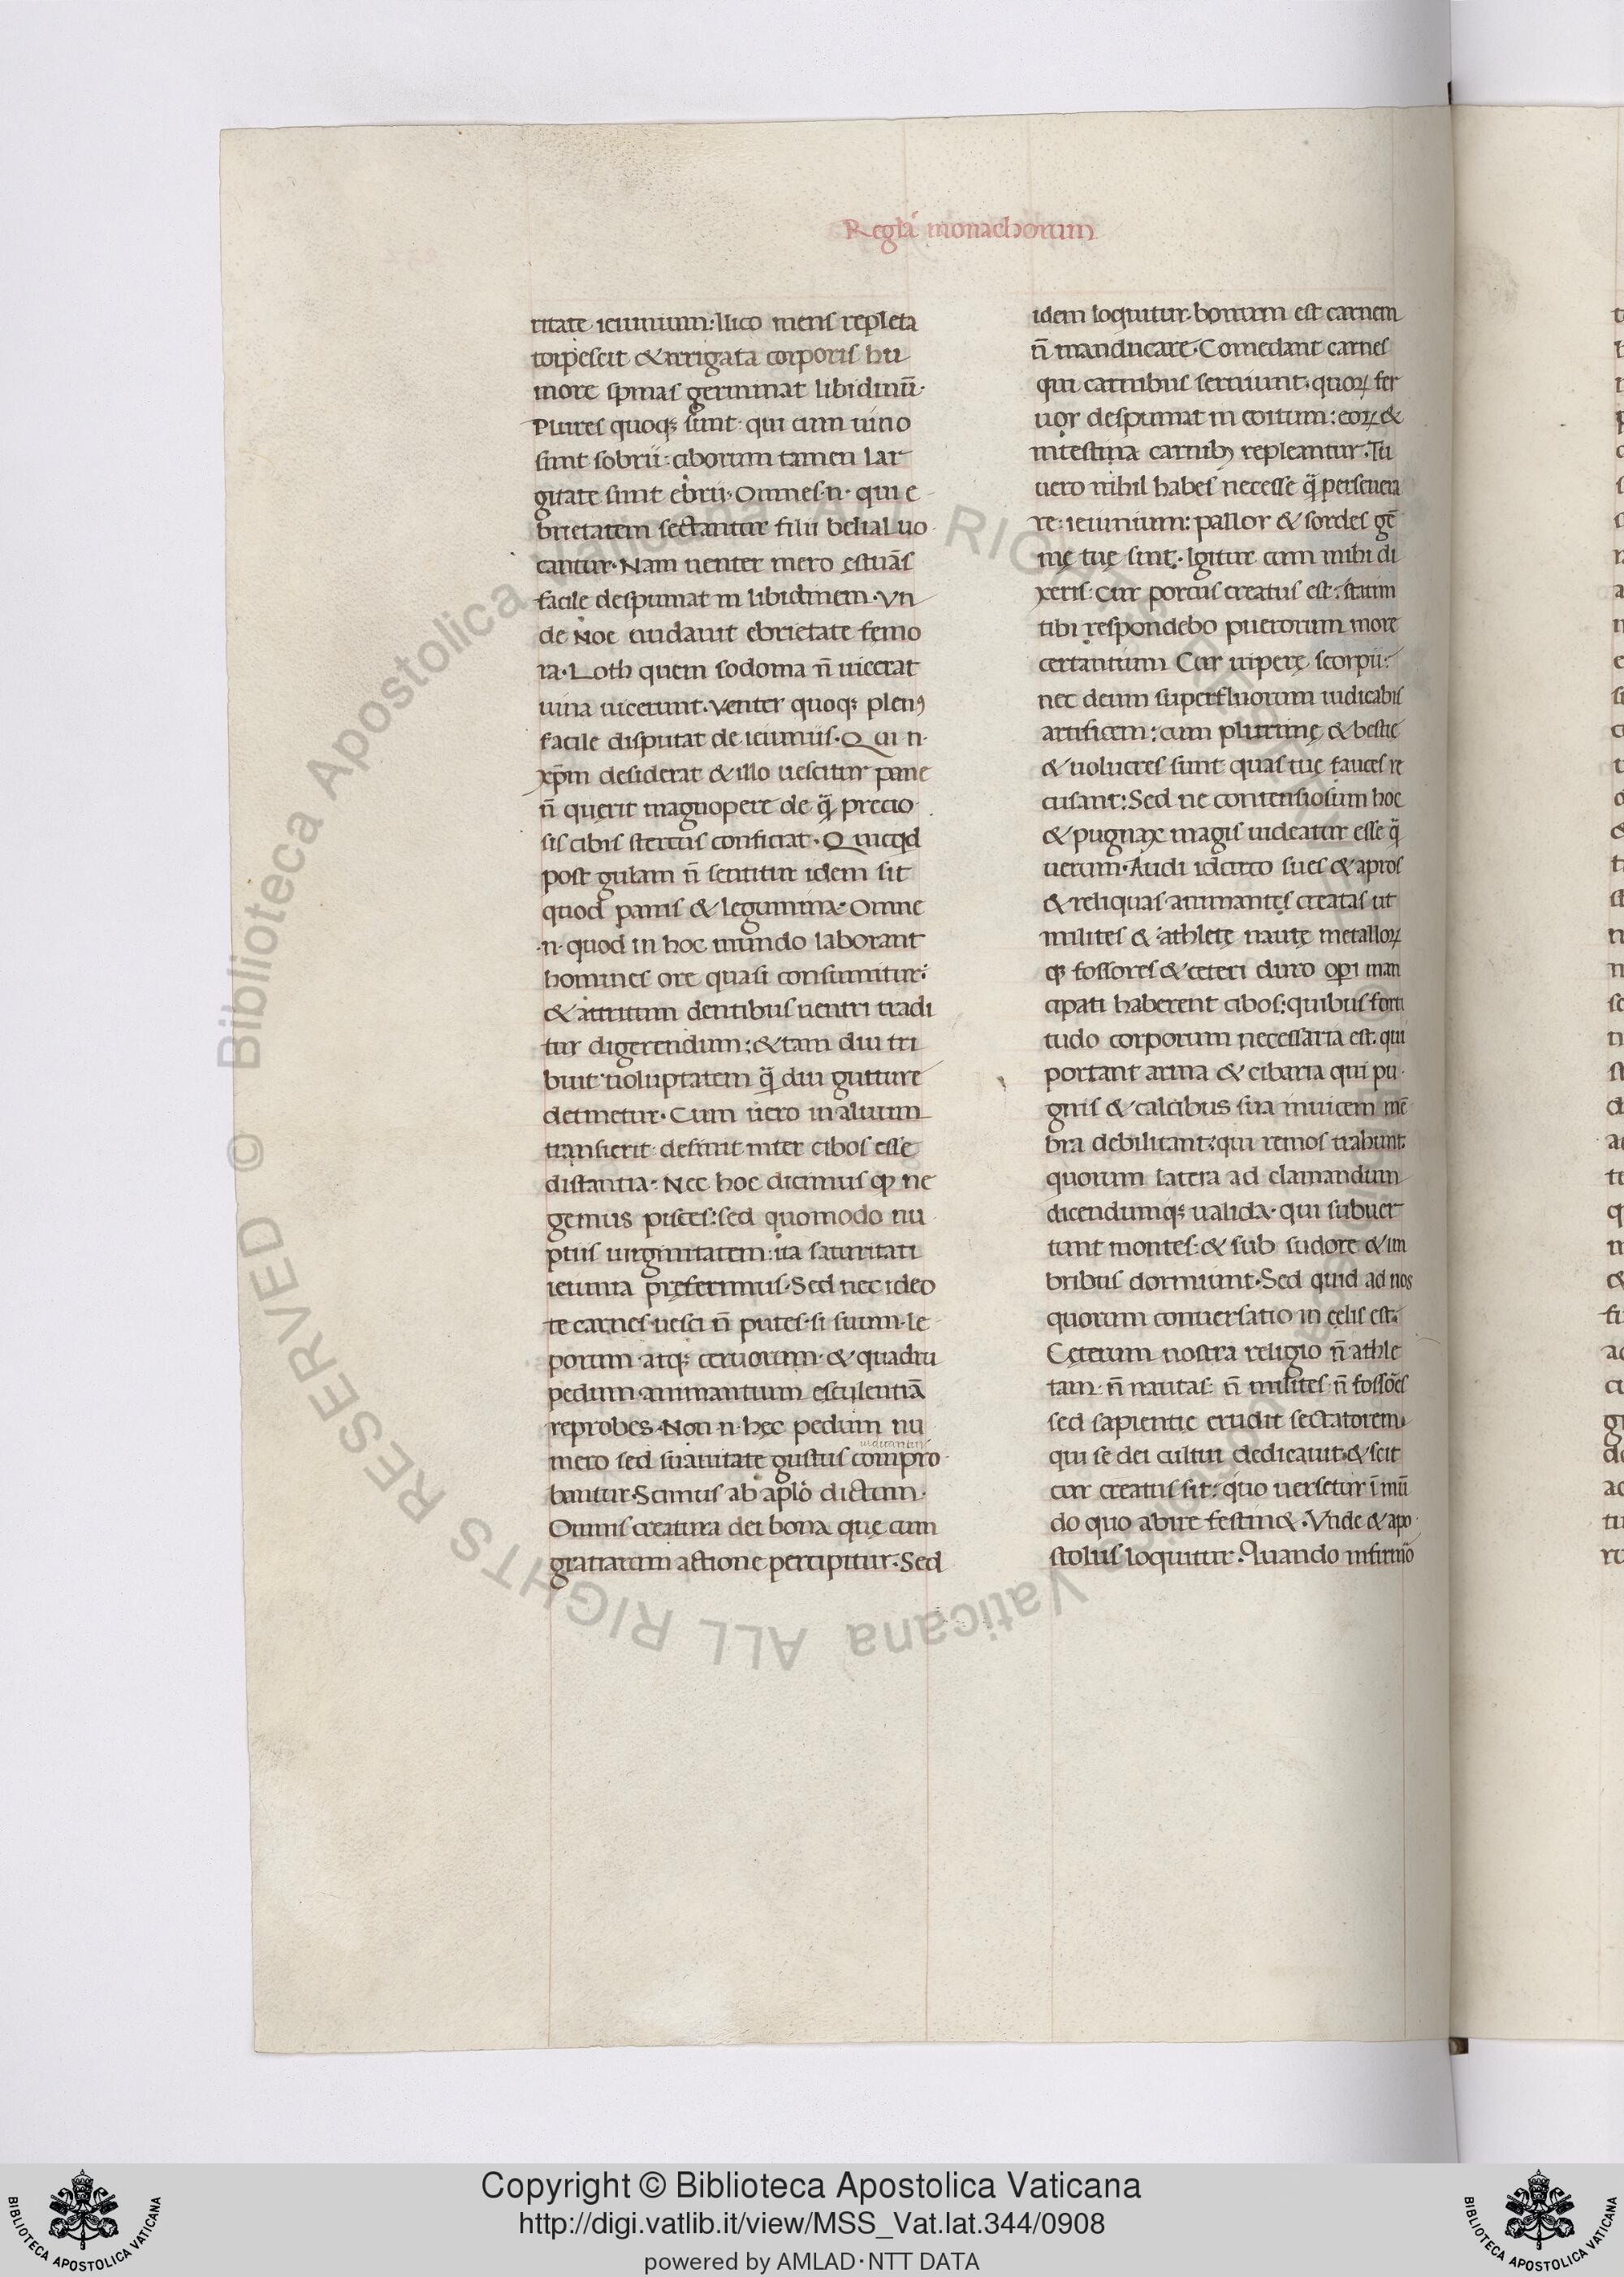 Regla monachorum
ritate ieiunium: Ilico mens repleta
torpescit & irrigata corporis hu
more spinas germinat libidinū.
Plures quoq; sunt qui cum uino
sint sobrii: ciborum tamen lar
gitate sunt ebrii. Omnes .n. qui e
brietatem sectantur filii belial uo
cantur. Nam uenter mero estuās
facile despumat in libidinem. Vn
de Noe nudauit ebrietate femo
ra. Loth quem sodoma n̄ uicerat
uina uicerunt. Venter quoq; plenꝰ
facile disputat de ieiuniis. Qui n.
xp̄m desiderat & illo uescitur pane
n̄ querit magnopere de q̄ precio
sis cibis stercus conficiat. Quicqd
post gulam n̄ sentitur idem sit
quod panis & legumina. Omne
.n. quod in hoc mundo laborant
homines ore quasi consumitur:
& attritum dentibus uentri tradi
tur digerendum: & tam diu tri
buit uoluptatem q̄ diu gutture
detinetur. Cum uero in aluum
transierit: desinit inter cibos esse
distantia. Nec hoc dicimus ꝙ ne
gemus pisces: sed quomodo nu
ptiis uirginitatem: ita saturitati
ieiunia preferimus. Sed nec ideo
te carnes uesci n̄ putes si suum le
porum atq; ceruorum & quadru
pedum animantium esculentiā
reprobes. Non .n. hec pedum nu
mero sed suauitate gustus compro
bantur. Scimus ab aplo dictum.
Omnis creatura dei bona que cum
gratiarum actione percipitur. Sed
idem loquitur. bonum est carnem
n̄ manducare. Comedant carnes
qui carnibus seruiunt. quoꝝ fer
uor despumat in coitum: eoꝝ &
intestina carnibꝫ repleantur. Tu
uero nihil habes necesse q̄ perseuera
re: ieiunium: pallor & sordes gē
mę tuę sint. Igitur cum mihi di
xeris: Cur porcus creatus est: statim
tibi respondebo puerorum more
certantium Cur uiperę scorpii:
nec deum superfluorum iudicabis
artificem: cum plurimę & bestie
& uolucres sunt quas tuę fauces re
cusant: Sed ne contensiosum hoc
& pugnax magis uideatur esse q̄
uerum. Audi idcirco sues & apros
& reliquas animantes creatas ut
milites & athletę nautę metalloꝝ
q; fossores & ceteri duro opi man
cipati haberent cibos: quibus forti
tudo corporum necessaria est. qui
portant arma & cibaria qui pu
gnis & calcibus sua inuicem mē
bra debilitant: qui remos trahunt
quorum latera ad clamandum
dicendumq; ualida. qui subuer
tunt montes & sub sudore & im
bribus dormiunt. Sed quid ad nos
quorum conuersatio in celis est.
Cęterum nostra religio n̄ athle
tam n̄ nautas n̄ milites n̄ fossōes
sed sapientie erudit sectatorem
qui se dei cultui dedicauit & scit
cur creatus sit: quo uersetur ī mū
do quo abire festin&. Vnde & apo
stolus loquitur. Quando infirmor
Copyright © Biblioteca Apostolica Vaticana
http://digi.vatlib.it/view/MSS_Vat.lat.344/0908
powered by AMLAD·NTT DATA
BIBLIOTECA APOSTOLICA VATICANA
BIBLIOTECA APOSTOLICA VATICANA
© Biblioteca Apostolica Vaticana ALL RIGHTS RESERVED